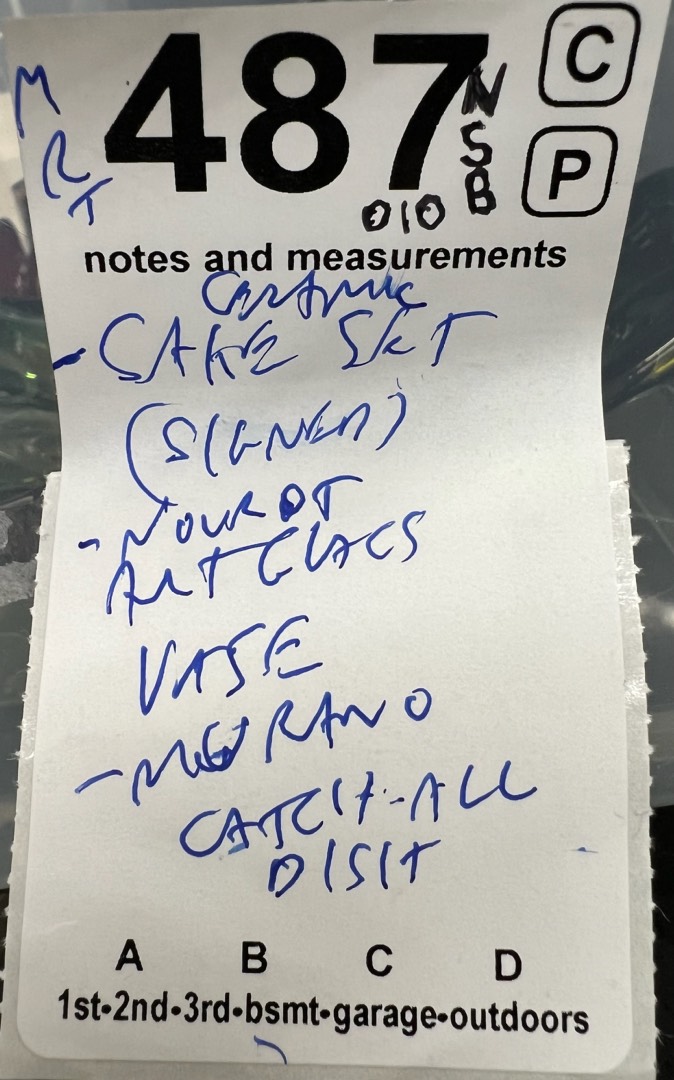 M
RT
487
N
S
B
010
C
P
notes and measurements
Ceramic
- SAKE SET
(SIGNED)
- NOUROT
ART GLASS
VASE
- MURANO
CATCH-ALL
DISH
A B C D
1st•2nd•3rd•bsmt•garage•outdoors